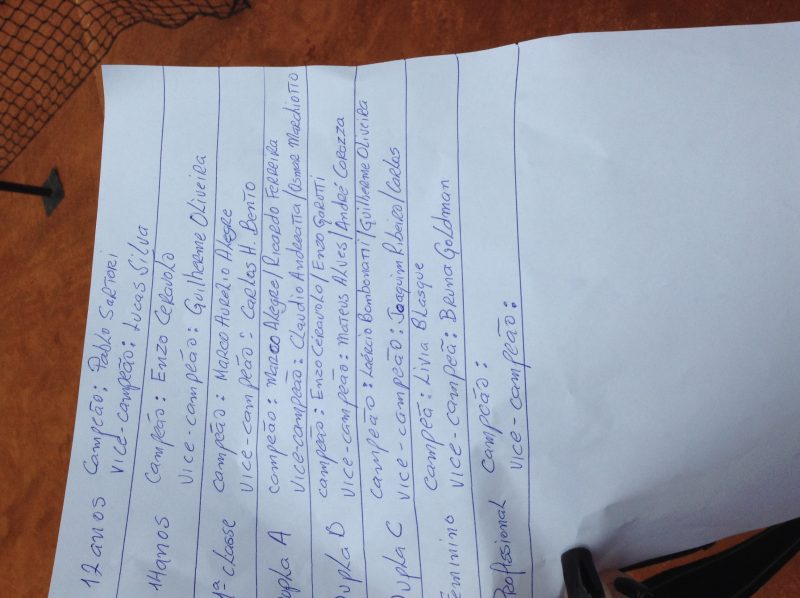 12 anos Campeão: Pablo Sartori
Vice-campeão: Lucas Silva
14 anos Campeão: Enzo Ceravolo
Vice-campeão: Guilherme Oliveira
1ª classe Campeão: Marco Aurélio Alegre
Vice-campeão: Carlos H. Bento
Dupla A campeão: Marco Alegre/Ricardo Ferreira
Vice-campeão: Claudio Andreatta/Osmar Marchiotto
Dupla B campeão: Enzo Céravolo/Enzo Garutti
Vice-campeão: Mateus Alves/André Corazza
Dupla C campeão: Laércio Bombonatti/Guilherme Oliveira
Vice-campeão: Joaquim Ribeiro/Carlos
Feminino campeã: Livia Blasque
Vice-campeã: Bruna Goldman
Profissional campeão:
Vice-campeão: